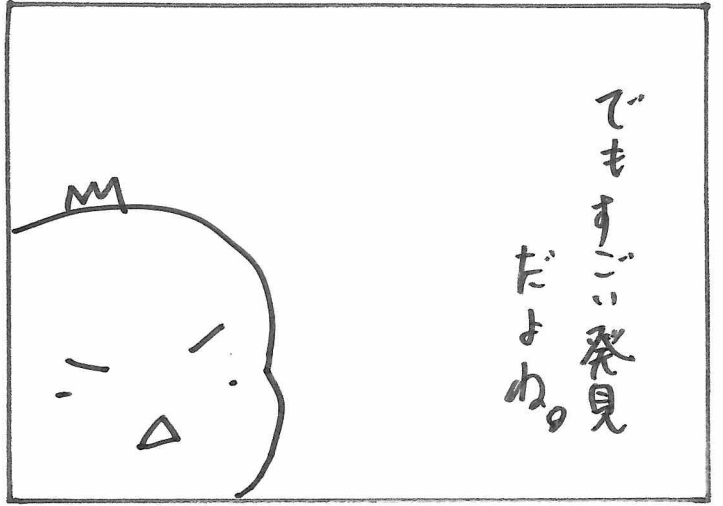 でもすごい発見
だよね。